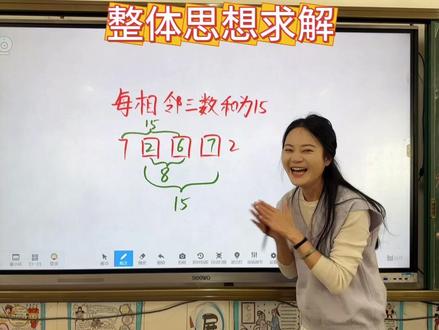 整体思想求解
每相邻三数和为15
15
7 2 6 7 2
8
15
seewo